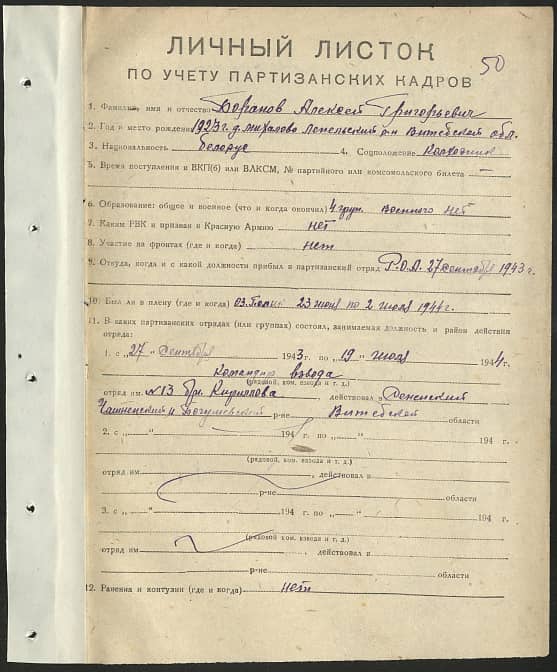 50
ЛИЧНЫЙ ЛИСТОК
ПО УЧЕТУ ПАРТИЗАНСКИХ КАДРОВ
1. Фамилия, имя и отчество Баранов Алексей Григорьевич
2. Год и место рождения 1923 г. д. Михалово Лепельский р-н Витебской обл.
3. Национальность белорус 4. Соцположение колхозник
5. Время поступления в ВКП(б) или ВЛКСМ, № партийного или комсомольского билета —
6. Образование: общее и военное (что и когда окончил) 4 груп. Военного нет
7. Каким РВК и призван в Красную Армию нет
8. Участие на фронтах (где и когда) нет
9. Откуда, когда и с какой должности прибыл в партизанский отряд Р.О.А. 27 сентября 1943 г.
10. Был ли в плену (где и когда) 03. 23 июня по 2 июля 1944 г.
11. В каких партизанских отрядах (или группах) состоял, занимаемая должность и район действия
отряда:
1. с „27" сентября 1943 г. по „19" июля 1944 г.
командир взвода
(рядовой, ком. взвода и т. д.)
отряд им. №13 бр. Кириллова, действовал в Сенненский
Чашникский и Богушевский р-не Витебской области
2. с „ — " 194 г. по „ — " 194 г.
(рядовой, ком. взвода и т. д.)
отряд им. , действовал в
р-не области
3. с „ — " 194 г. по „ — " 194 г.
(рядовой, ком. взвода и т. д.)
отряд им. , действовал в
р-не области
12. Ранения и контузии (где и когда) нет